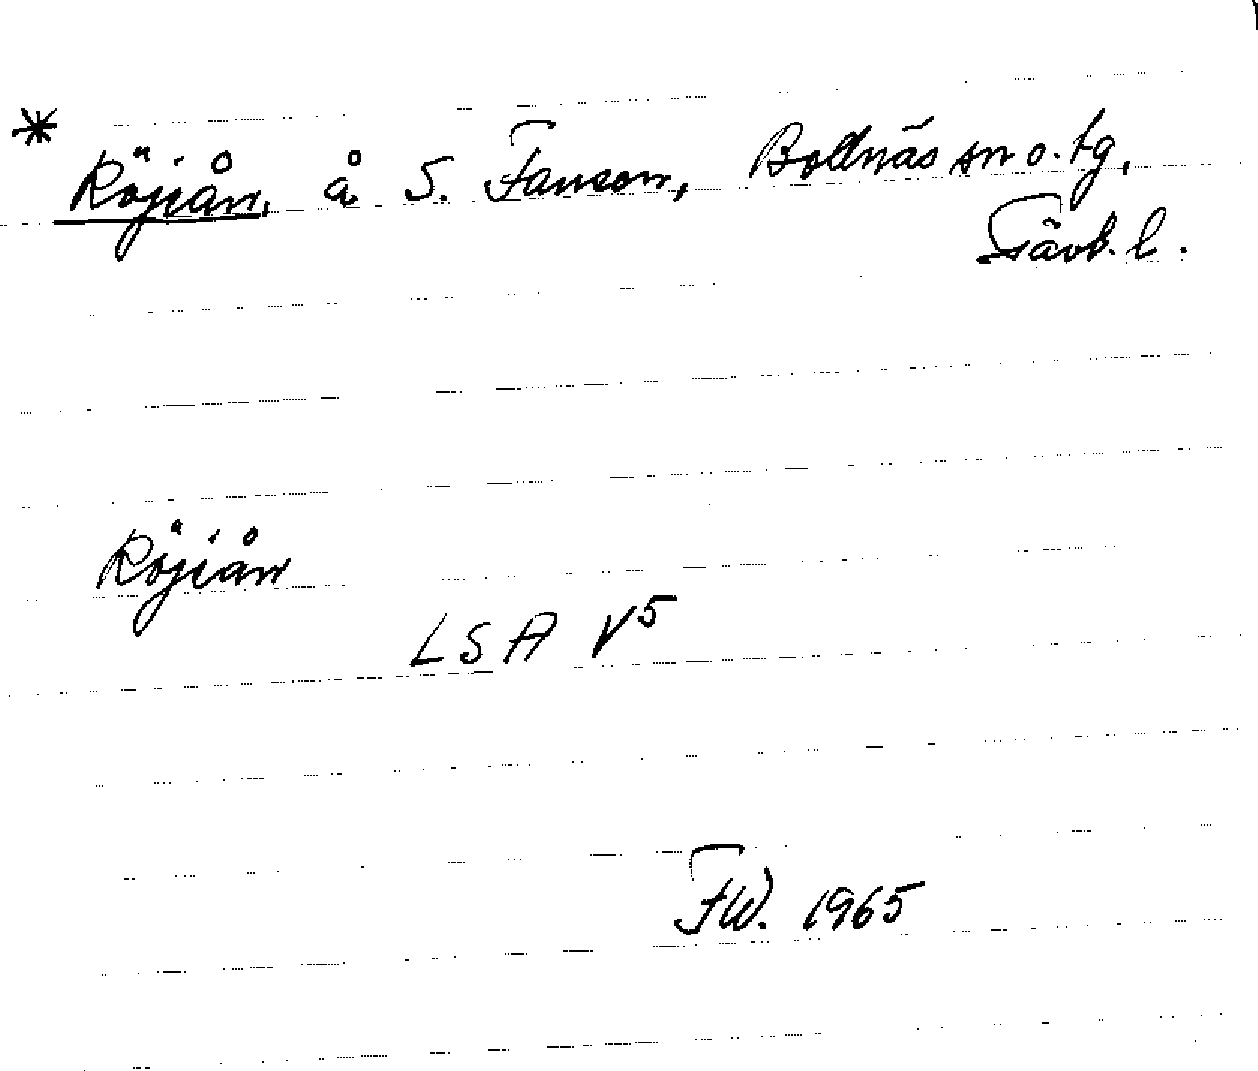 * Röjiån, å S. Fanson, Bollnäs sn o. tg,
Gävb. l.
Röjiån
LSA V5
FW. 1965